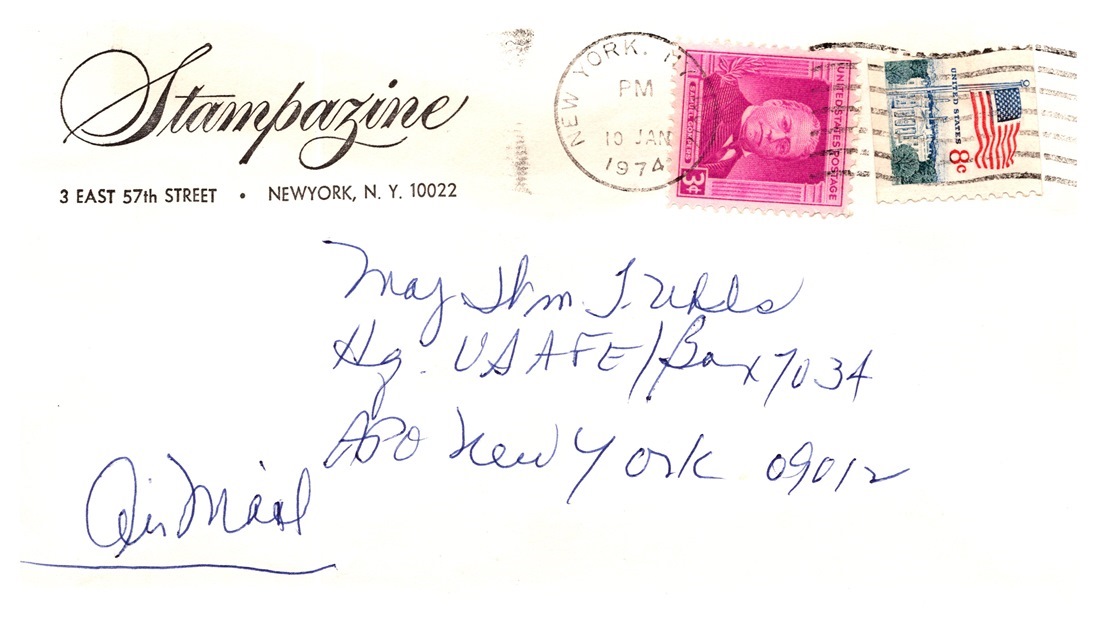 Stampazine
3 EAST 57th STREET • NEWYORK, N. Y. 10022
NEW YORK, NY
PM
10 JAN
1974
UNITED STATES POSTAGE
SAMUEL GOMPERS
3¢
UNITED STATES
8c
Maj
Hq. USAFE/Box 7034
APO New York 09012
Air Mail